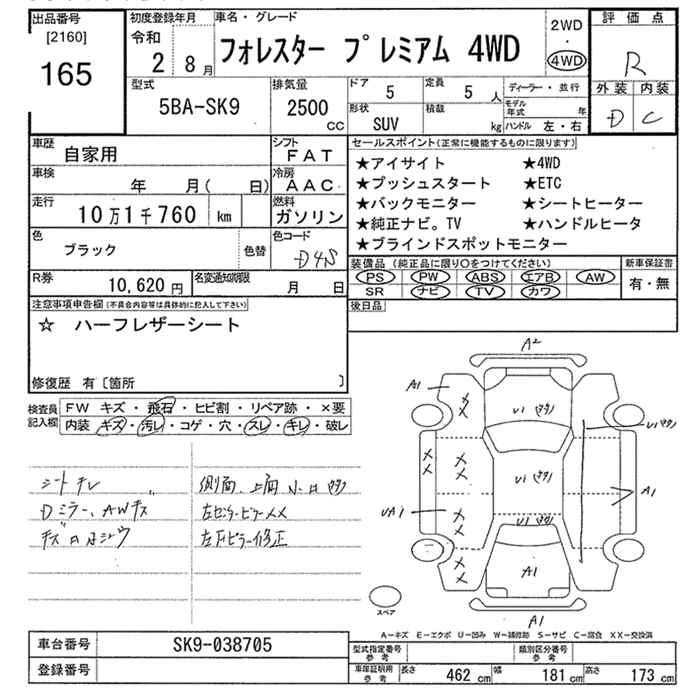 出品番号 初度登録年月 車名・グレード 2WD 評価点
[2160] 令和 フォレスター プレミアム 4WD ・ R
165 2 8月 4WD 外装 内装
型式 排気量 ドア 定員 ディーラー・並行 D C
5BA-SK9 2500 5 5人 モデル年式 年
cc 形状 SUV 積載 kg ハンドル 左・右
車歴 自家用 シフト FAT セールスポイント(正常に機能するものに限ります)
車検 年 月( 日) 冷房 AAC ★アイサイト ★4WD
★プッシュスタート ★ETC
走行 10万1千760 km 燃料 ガソリン ★バックモニター ★シートヒーター
★純正ナビ。TV ★ハンドルヒータ
色 ブラック 色替 色コード D4S ★ブラインドスポットモニター
装備品(純正品に限り○をつけてください) 新車保証書
R券 10,620円 名変通知期限 月 日 PS PW ABS エアB AW 有・無
SR ナビ TV カワ
注意事項申告欄(不具合内容等は具体的に記入して下さい) 後日品
☆ ハーフレザーシート
修復歴 有〔箇所 〕
検査員記入欄 FW キズ・飛石・ヒビ割・リペア跡・×要
内装 キズ・汚レ・コゲ・穴・スレ・キレ・破レ
シートキレ 側面、上面小凹
Dミラー、AWキズ 左センターピラーメメ
左Fピラー修正
A2
A1
U1
U1
U1
U1
UA1
A1
A1
A1
スペア
A−キズ E−エクボ U−凹み W−補修跡 S−サビ C−腐食 XX−交換済
車台番号 SK9-038705 型式指定番号 参考 類別区分番号 参考
登録番号 車庫証明用 参考 長さ 462 cm 幅 181 cm 高さ 173 cm